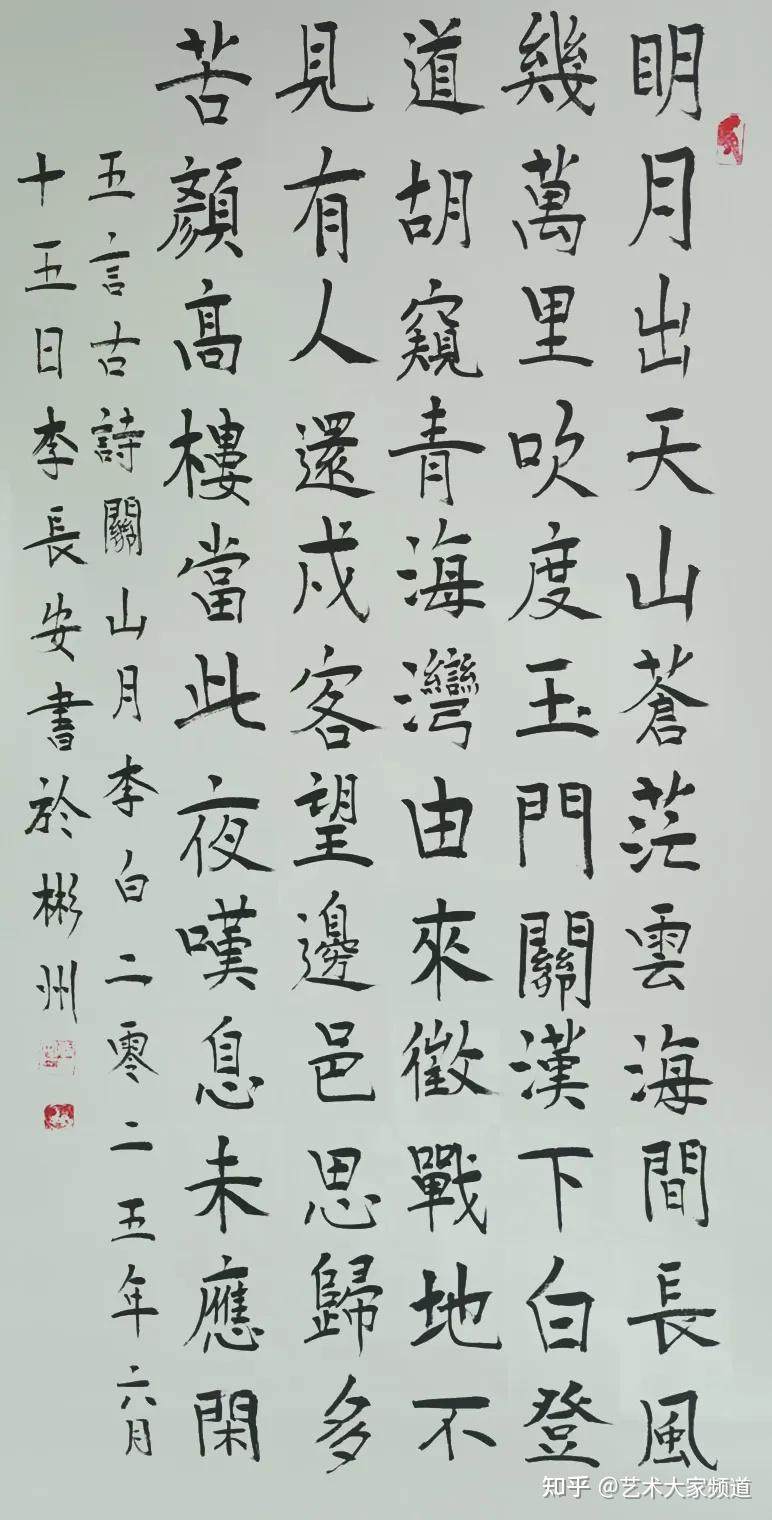 眀月出天山蒼茫雲海間長風
幾萬里吹度玉門關漢下白登
道胡窺青海灣由來徵戰地不
見有人還戍客望邊邑思歸多
苦顏髙樓當此夜嘆息未應閑
五言古詩關山月李白二零二五年六月
十五日李長安書於彬州
知乎 @艺术大家频道